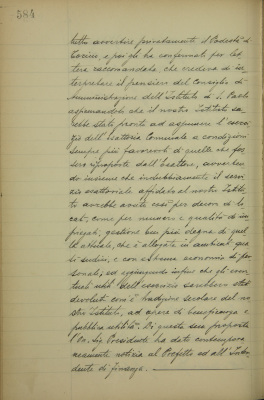 584
tutto avvertire privatamente il Podestà di
Torino, e poi gli ha confermato per let-
tera raccomandata, che credeva di in-
terpretare il pensiero del Consiglio di
Amministrazione dell'Istituto di S. Paolo
esponendole che il nostro Istituto sa-
rebbe stato pronto ad assumere l'eserci-
zio dell'Esattoria Comunale a condizioni
sempre più favorevoli di quelle che fos-
sero proposte dall'Esattore, avverten-
do insieme che indubbiamente il servi-
zio esattoriale affidato al nostro Istitu-
to avrebbe avuto così per decoro di lo-
cali, come per numero e qualità di im-
piegati, gestione ben più degna di quel-
la attuale, che è allogata in ambienti qua-
si sudici, e con estrema economia di per-
sonale; ed aggiungendo infine che gli even-
tuali utili dell'esercizio sarebbero stati
devoluti com'è tradizione secolare del no-
stro Istituto, ad opere di beneficenza e
pubblica utilità. Di questa sua proposta
l'On. Sig. Presidente ha dato contempora-
neamente notizia al Prefetto ed all'Inten-
dente di finanza.